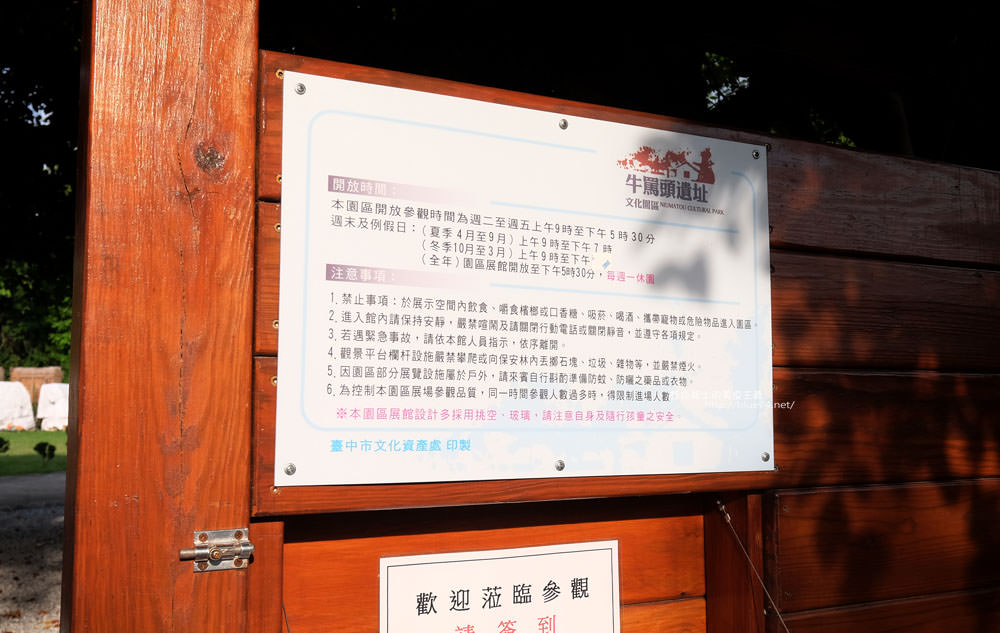 牛罵頭遺址
文化園區 NIUMATOU CULTURAL PARK
開放時間：
本園區開放參觀時間為週二至週五上午9時至下午5時30分
週末及例假日：（夏季4月至9月）上午9時至下午7時
（冬季10月至3月）上午9時至下午
（全年）園區展館開放至下午5時30分，每週一休園
注意事項：
1. 禁止事項：於展示空間內飲食、嚼食檳榔或口香糖、吸菸、喝酒、攜帶寵物或危險物品進入園區。
2. 進入館內請保持安靜，嚴禁喧鬧及請關閉行動電話或關閉靜音，並遵守各項規定。
3. 若遇緊急事故，請依本館人員指示，依序離開。
4. 觀景平台欄杆設施嚴禁攀爬或向保安林內丟擲石塊、垃圾、雜物等，並嚴禁煙火。
5. 因園區部分展覽設施屬於戶外，請來賓自行斟酌準備防蚊、防曬之藥品或衣物。
6. 為控制本園區展場參觀品質，同一時間參觀人數過多時，得限制進場人數
※本園區展館設計多採用挑空、玻璃，請注意自身及隨行孩童之安全。
臺中市文化資產處 印製
歡迎蒞臨參觀
請簽到